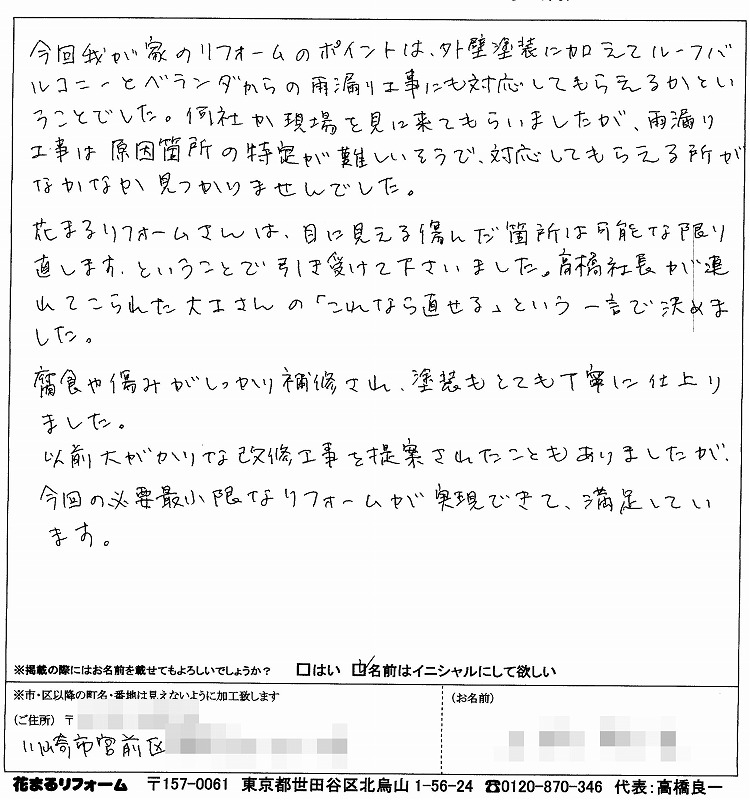 今回我が家のリフォームのポイントは、外壁塗装に加えてルーフバ
ルコニーとベランダからの雨漏り工事にも対応してもらえるかとい
うことでした。何社か現場を見に来てもらいましたが、雨漏り
工事は原因箇所の特定が難しいそうで、対応してもらえる所が
なかなか見つかりませんでした。
花まるリフォームさんは、目に見える傷んだ箇所は可能な限り
直します、ということで引き受けて下さいました。高橋社長が連
れてこられた大工さんの「これなら直せる」という一言で決めま
した。
腐食や傷みがしっかり補修され、塗装もとても丁寧に仕上り
ました。
以前大がかりな改修工事を提案されたこともありましたが、
今回の必要最小限なリフォームが実現できて、満足してい
ます。
※掲載の際にはお名前を載せてもよろしいでしょうか? □はい □名前はイニシャルにして欲しい
※市・区以降の町名・番地は見えないように加工致します
(ご住所) 〒
川崎市宮前区
(お名前)
花まるリフォーム 〒157-0061 東京都世田谷区北烏山 1-56-24 ☎0120-870-346 代表:高橋良一